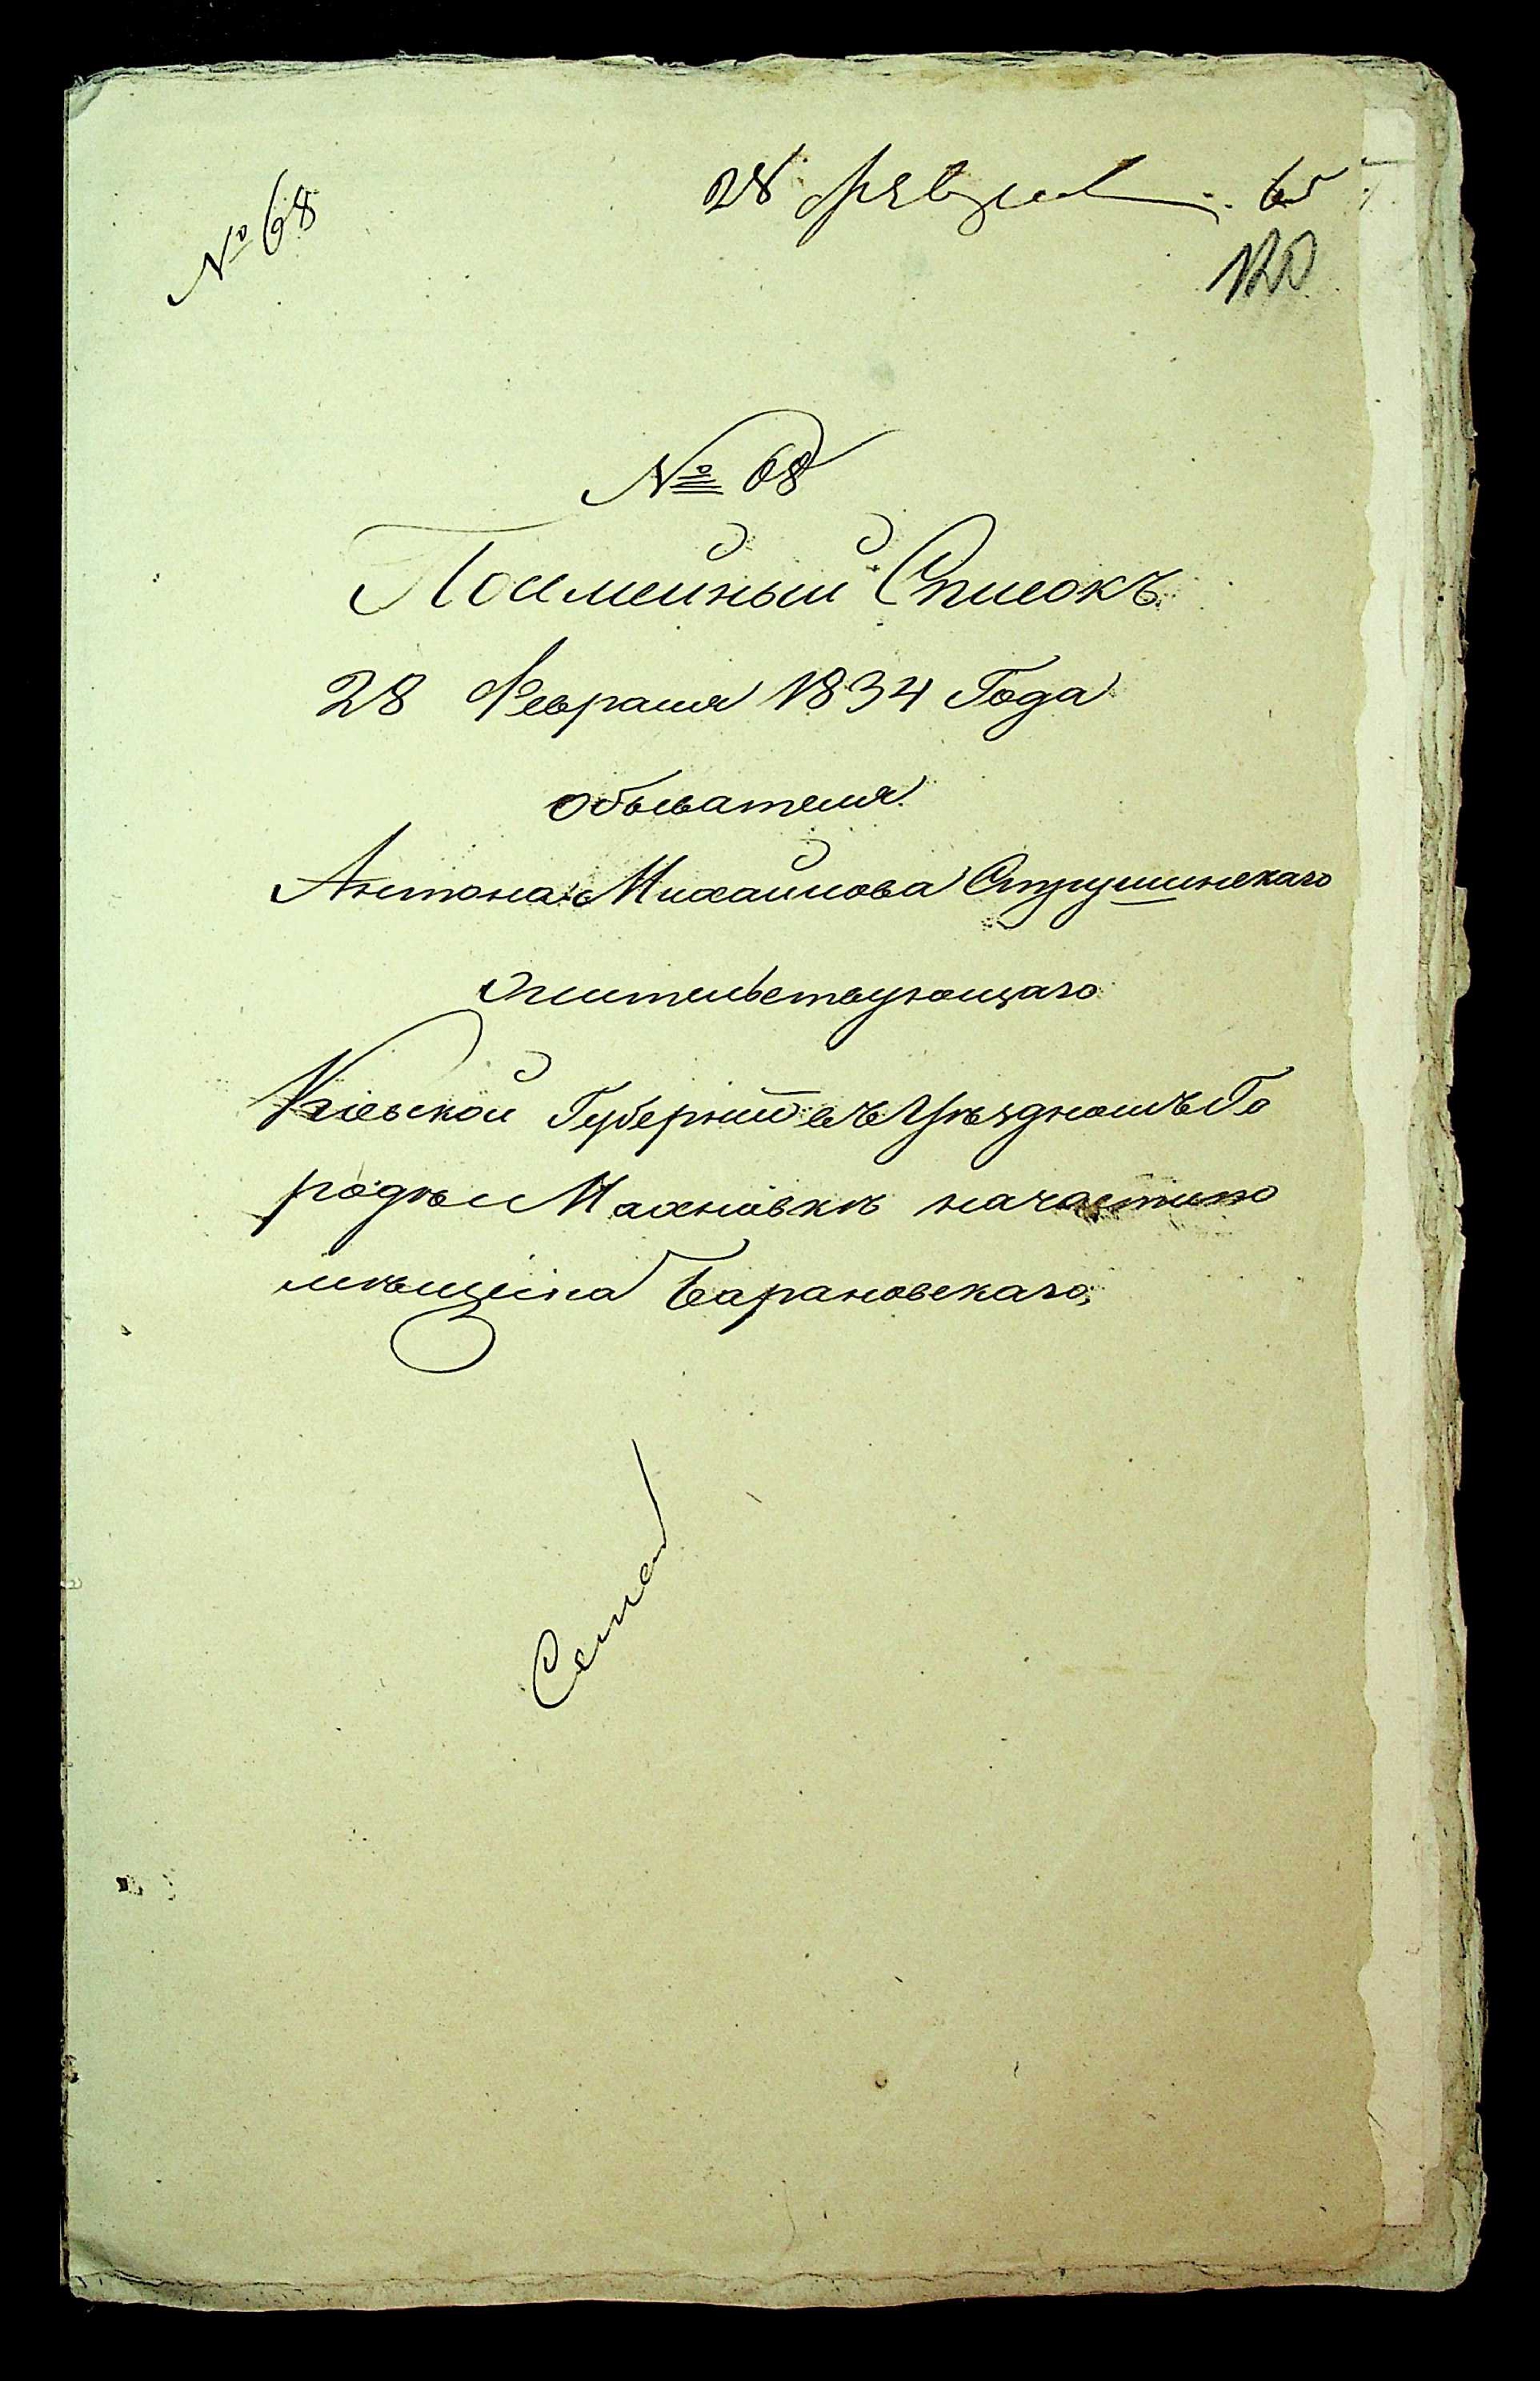 № 68
28 Феврал 65
120
№ 68
Посмейный Списокъ
28 Февраля 1834 Года
обывателя
Антона Михайлова Струшинскаго
жительствующаго
Кіевской Губерніи въ Уѣздномъ Го
родѣ Махновкѣ начасти по
мѣщика Барановскаго,